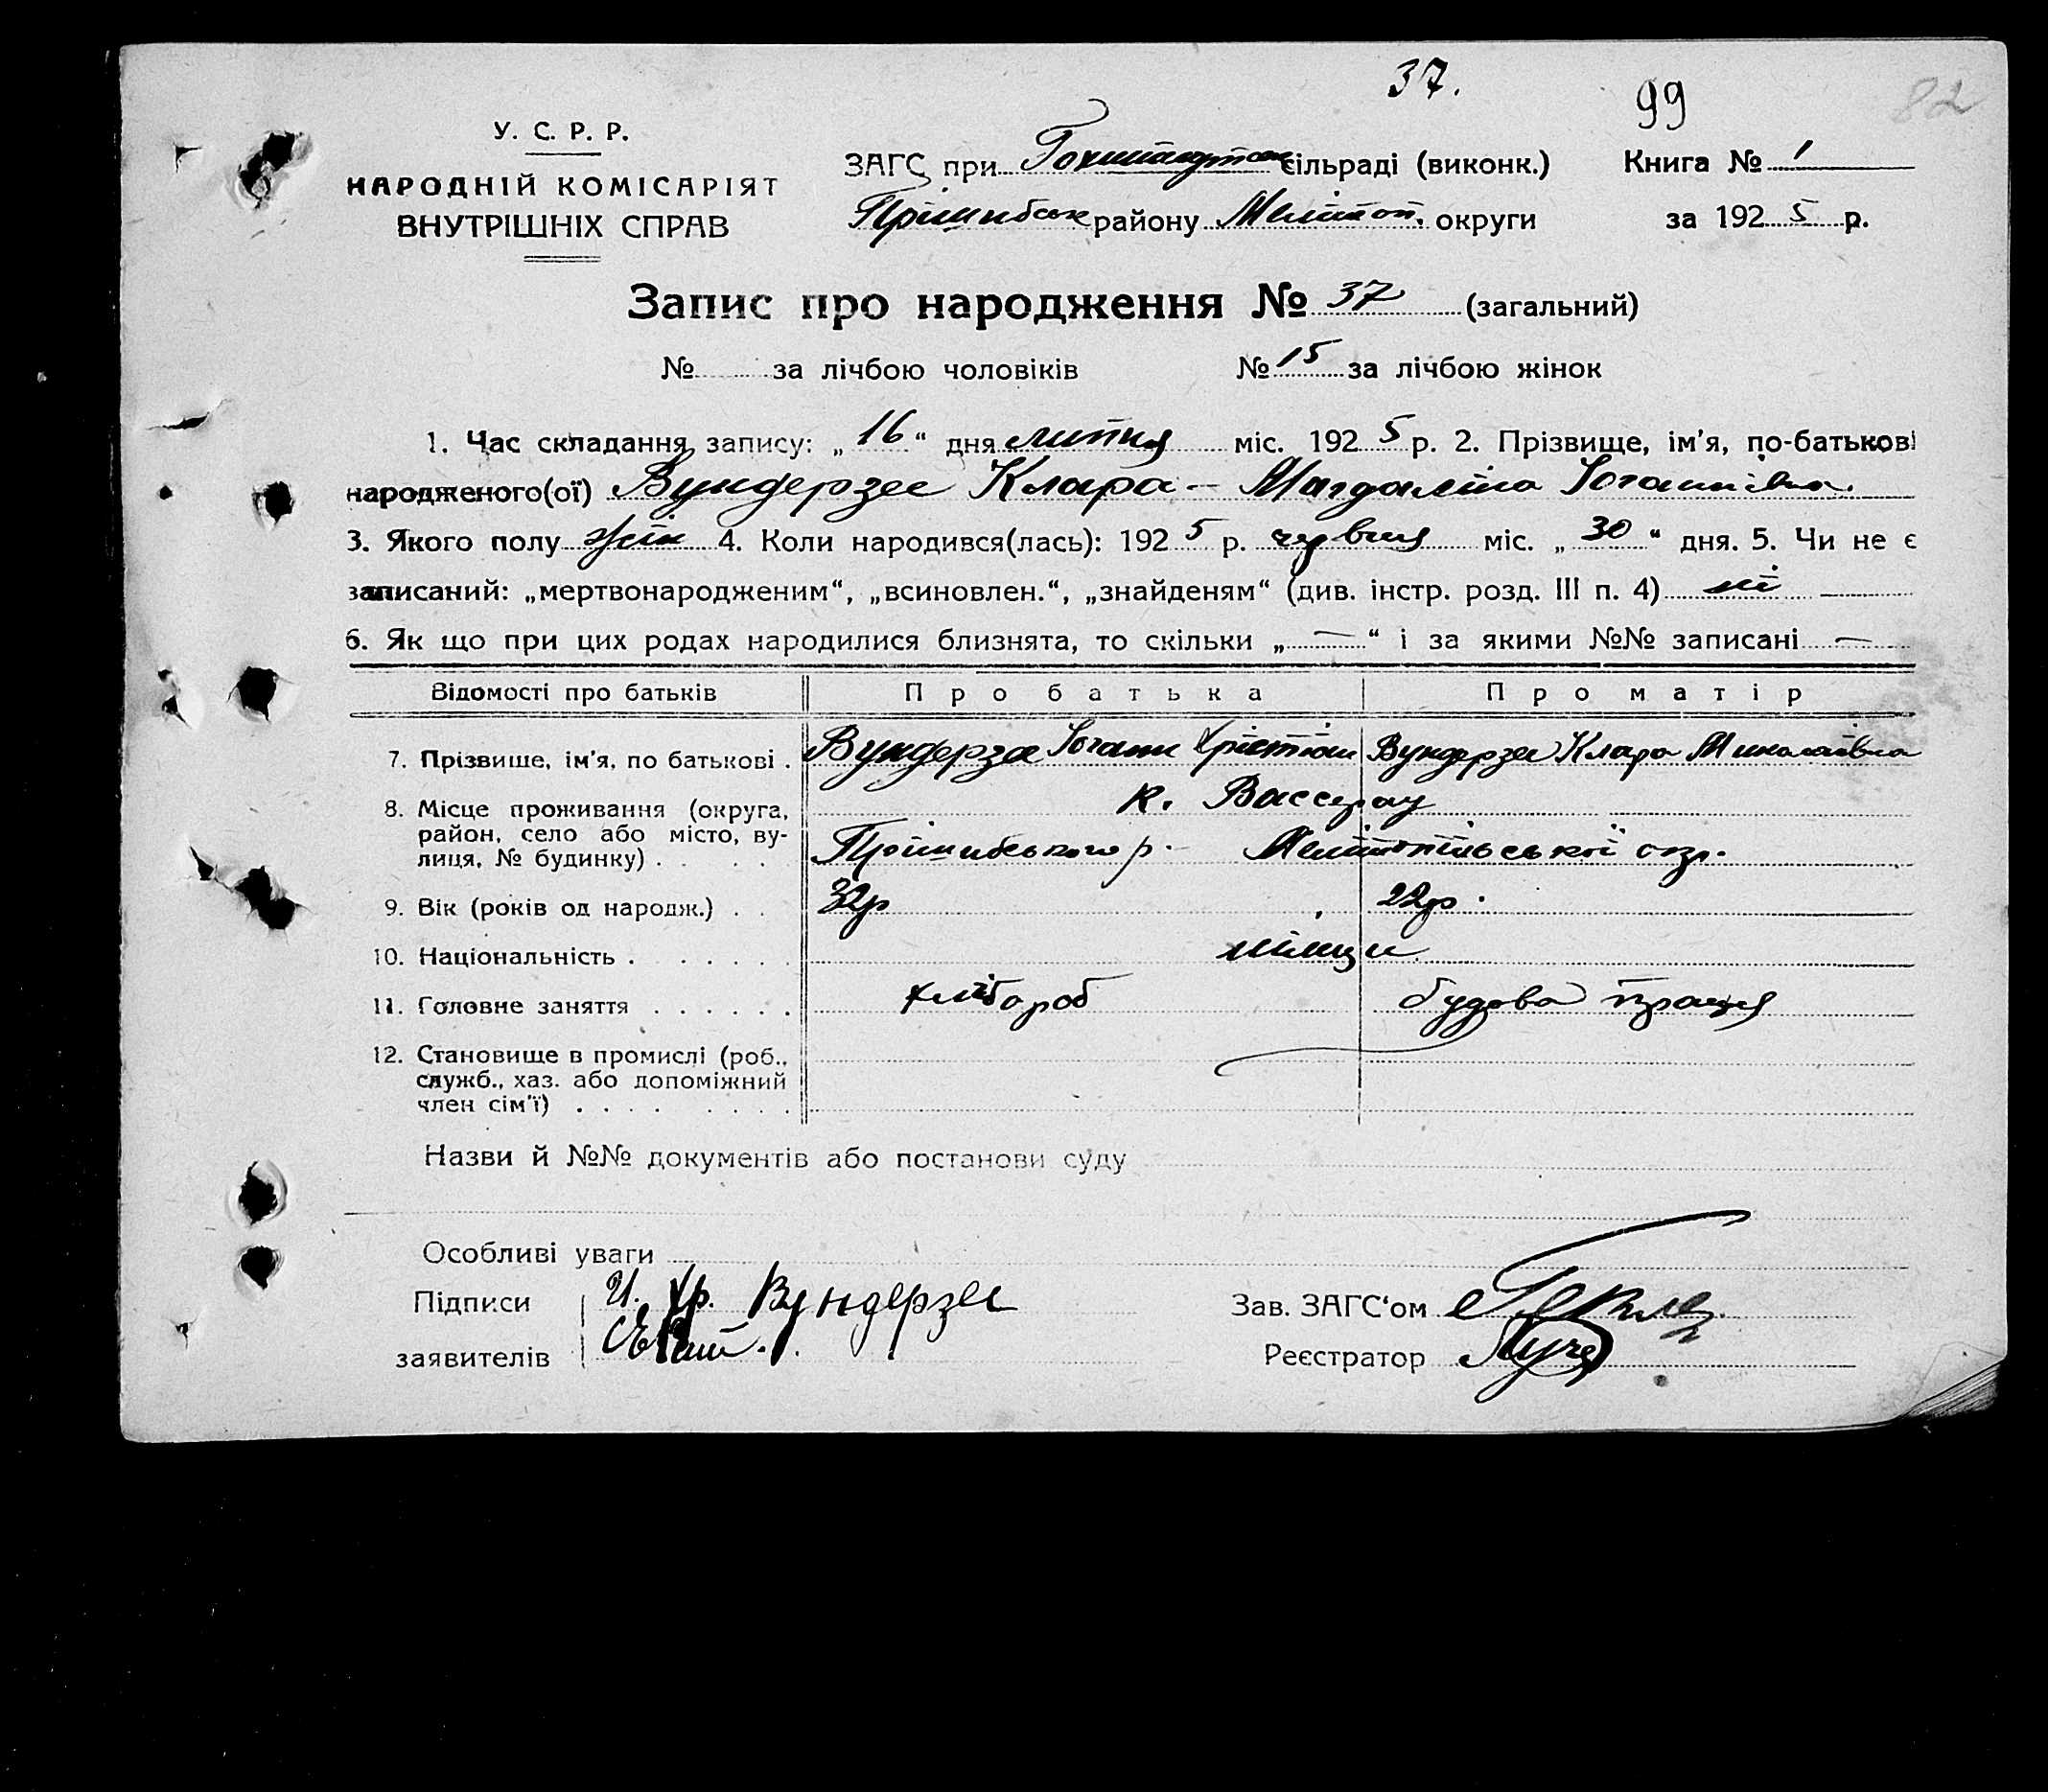 37.
99
82
У. С. Р. Р.
НАРОДНІЙ КОМІСАРІЯТ
ВНУТРІШНІХ СПРАВ
ЗАГС при Гохштадт сільраді (виконк.) Книга № 1
Пришибськ району Мелітоп. округи за 1925 р.
Запис про народження № 37 (загальний)
№ за лічбою чоловіків № 15 за лічбою жінок
1. Час складання запису: „16“ дня липня міс. 1925 р. 2. Прізвище, ім'я, по-батькові
народженого(ої) Вундерзее Клара - Магдаліна Йоганнівна.
3. Якого полу жін 4. Коли народився(лась): 1925 р. червня міс. „30“ дня. 5. Чи не є
записаний: „мертвонародженим“, „всиновлен.“, „знайденям“ (див. інстр. розд. III п. 4) ні —
6. Як що при цих родах народилися близнята, то скільки „—“ і за якими №№ записані —
Відомості про батьків Про батька Про матір
7. Прізвише, ім'я, по батькові . Вундерзее Йоганн Хрістіан Вундерзее Клара Миколаївна
8. Місце проживання (округа, район, село або місто, вулиця, № будинку) . к. Вассерау
Прішибського р. Мелітопільської окр.
9. Вік (років од народж.) . . 32р 22р.
10. Національність . німци
11. Головне заняття . . . . . . хлібороб будова праця
12. Становище в промислі (роб.,
служб., хаз. або допоміжний
член сім'ї) . . . .
Назви й №№ документів або постанови суду
Особливі уваги
Підписи И. Хр. Вундерзее Зав. ЗАГС'ом
заявителів Реєстратор